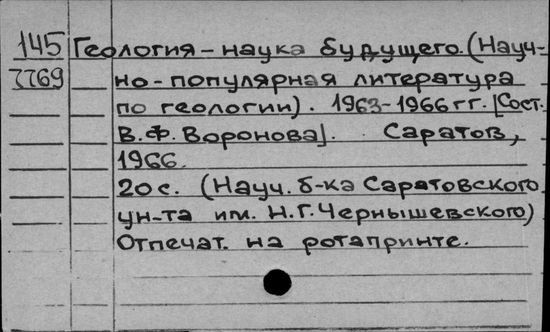 145 Геология - наука будущего. (Науч-
7769 но-популярная литература
по геологии). 1963-1966 гг. [Сост.
В.Ф. Воронова]. Саратов,
1966.
20 с. (Науч. б-ка Саратовского
ун-та им. Н.Г. Чернышевского)
Отпечат. на ротапринте.